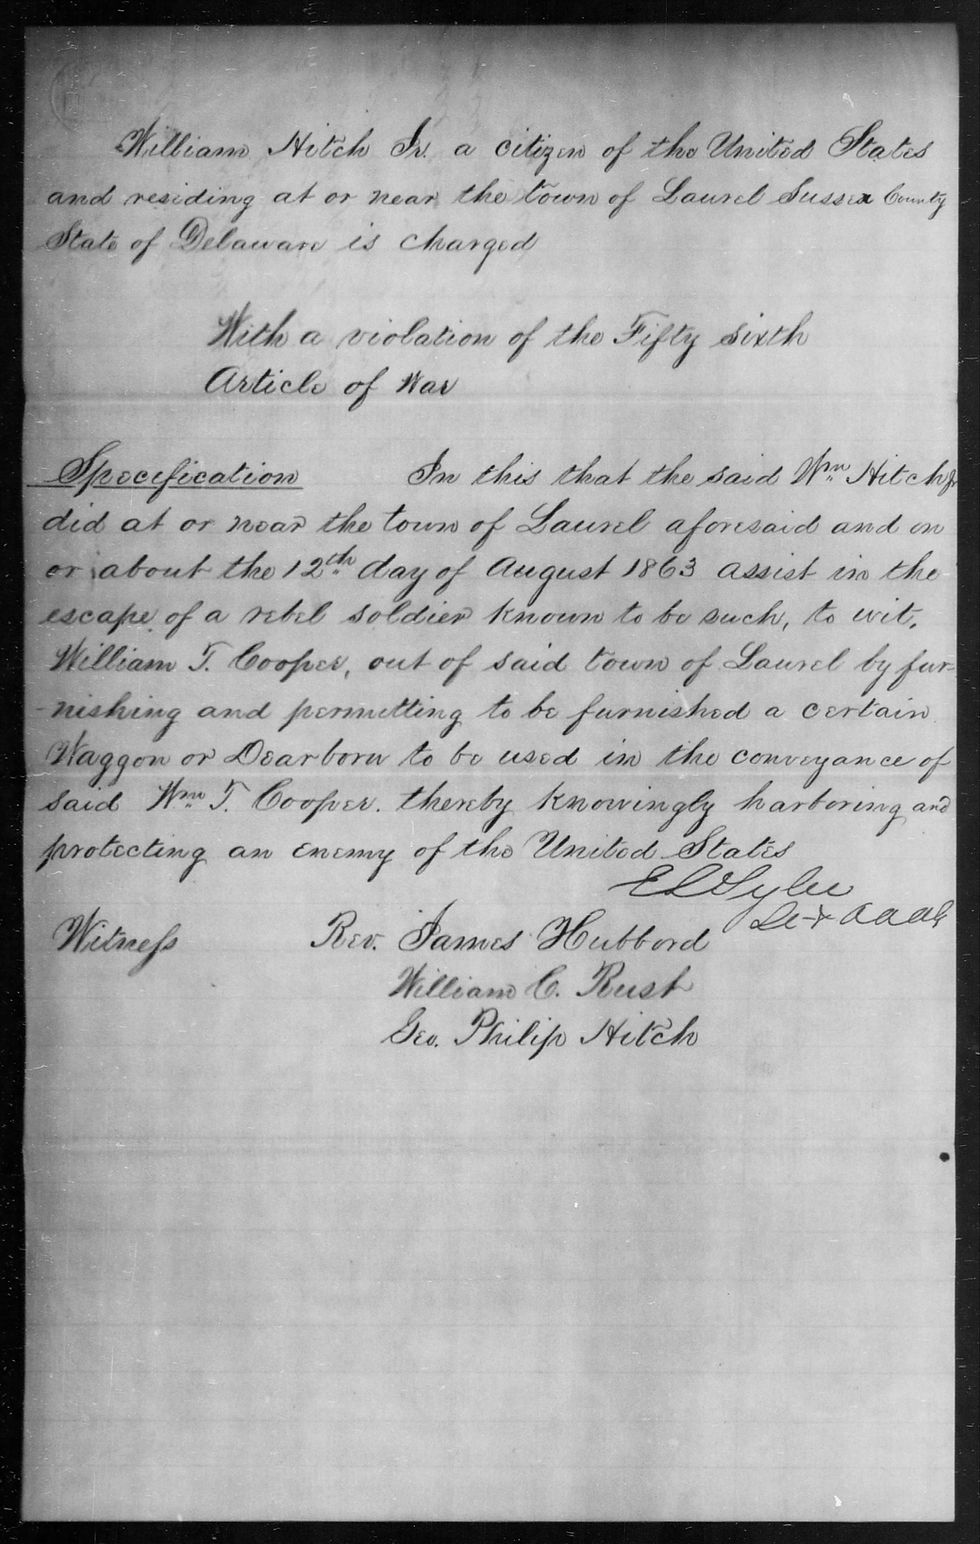 William Hitch Jr. a citizen of the United States
and residing at or near the town of Laurel Sussex County
State of Delaware is charged
With a violation of the Fifty sixth
Article of War
Specification In this that the said Wm Hitch Jr
did at or near the town of Laurel aforesaid and on
or about the 12th day of August 1863 assist in the
escape of a rebel soldier known to be such, to wit,
William T. Cooper, out of said town of Laurel by fur-
-nishing and permitting to be furnished a certain
Waggon or Dearborn to be used in the conveyance of
said Wm T. Cooper. thereby knowingly harboring and
protecting an enemy of the United States
E L Tyler
Lt & AAAG
Witness Rev. James Hubbord
William C. Rust
Geo. Philip Hitch